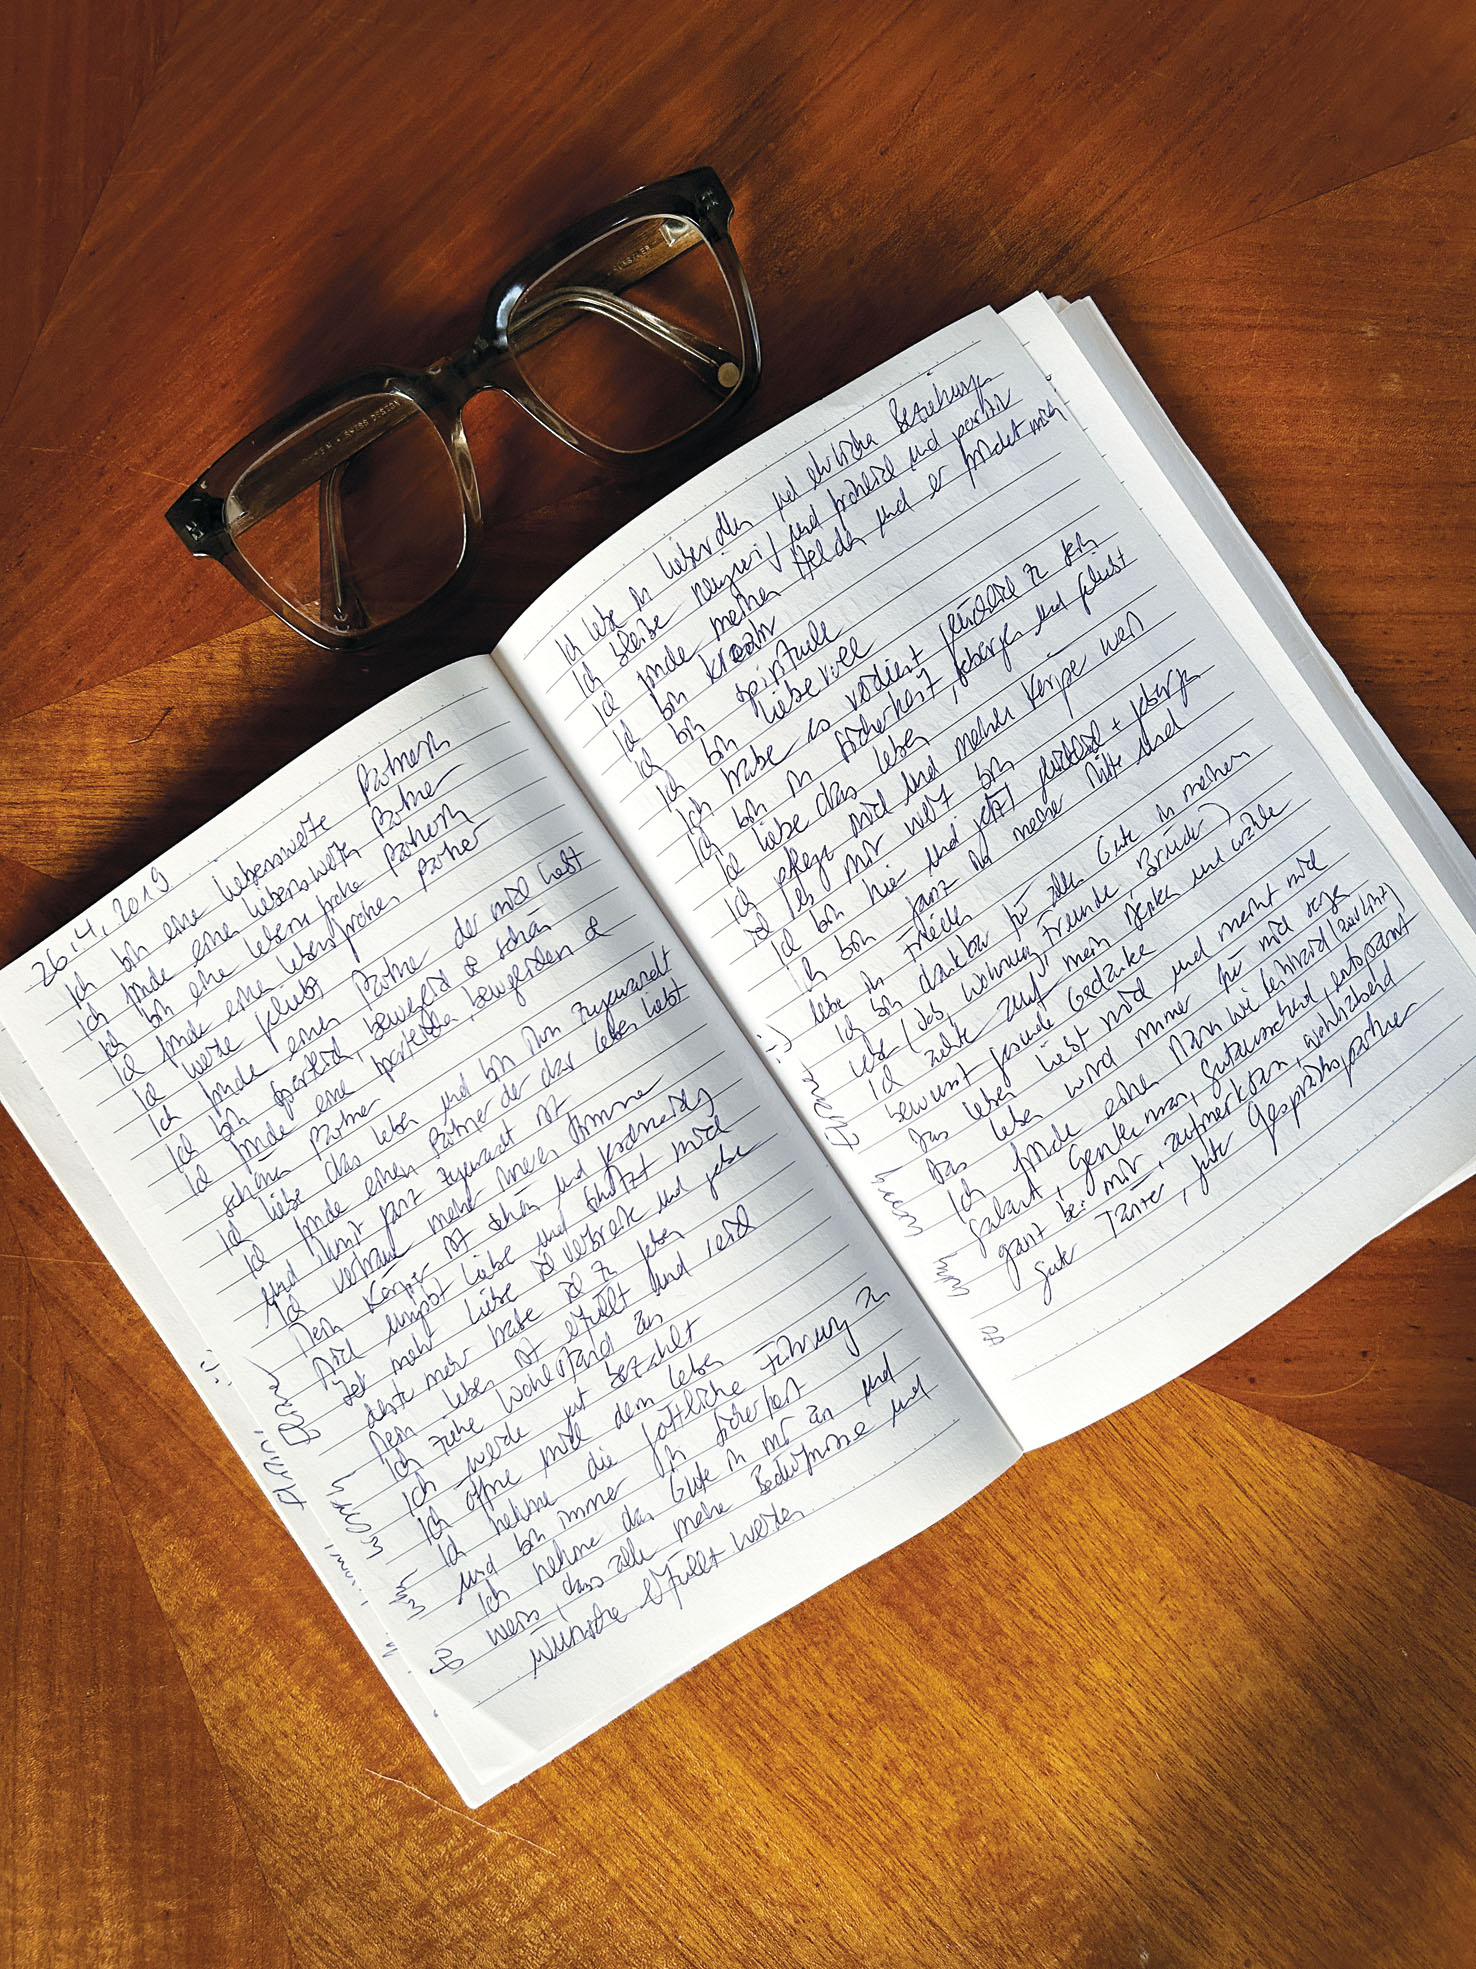 26.4.2019
Ich bin eine liebenswerte Partnerin
Ich finde einen liebenswerten Partner
Ich bin eine lebensfrohe Partnerin
Ich finde einen lebensfrohen Partner
Ich werde geliebt
Ich finde einen Partner der mich liebt
Ich bin sportlich, beweglich & schön
Ich finde eine sportlichen, beweglichen &
schönen Partner
Ich liebe das Leben und bin ihm zugewandt
Ich finde einen Partner der das Leben liebt
und ihm ganz zugewandt ist
Ich vertraue meiner inneren Stimme
Mein Körper ist schön und geschmeidig
Mich umgibt Liebe und schützt mich
Je mehr Liebe ich verbreite und gebe
desto mehr habe ich zu geben
Mein Leben ist erfüllt und reich
Ich ziehe Wohlstand an
Ich werde gut bezahlt
Ich öffne mich dem Leben
Ich nehme die göttliche Führung an
und bin immer in Sicherheit
Ich nehme das Gute in mir an und
weiss, dass alle meine Bedürfnisse und
Wünsche erfüllt werden
Ich lebe in liebevollen und ehrlichen Beziehungen
Ich bleibe neugierig und fröhlich und positiv
Ich finde meinen Helden und er findet mich
Ich bin kreativ
Ich bin spirituell
Ich bin liebevoll
Ich habe es verdient glücklich zu sein
Ich bin in Sicherheit, geborgen und geliebt
Ich liebe das Leben
Ich pflege mich und meinen Körper weil
ich es mir wert bin
Ich bin hier und jetzt glücklich + geborgen
Ich bin ganz in meiner Mitte und
lebe in Frieden
Ich bin dankbar für alles Gute in meinem
Leben (Job, Wohnung, Freunde, Brüder)
Ich achte auf mein Denken und wähle
bewusst gesunde Gedanken
Das Leben liebt mich und meint mich
Das Leben wird immer für mich sorgen
Ich finde einen Mann wie
galant, Gentleman, gutaussehend, entspannt
ganz bei mir, aufmerksam, wohlhabend
guter Tänzer, guter Gesprächspartner
:)